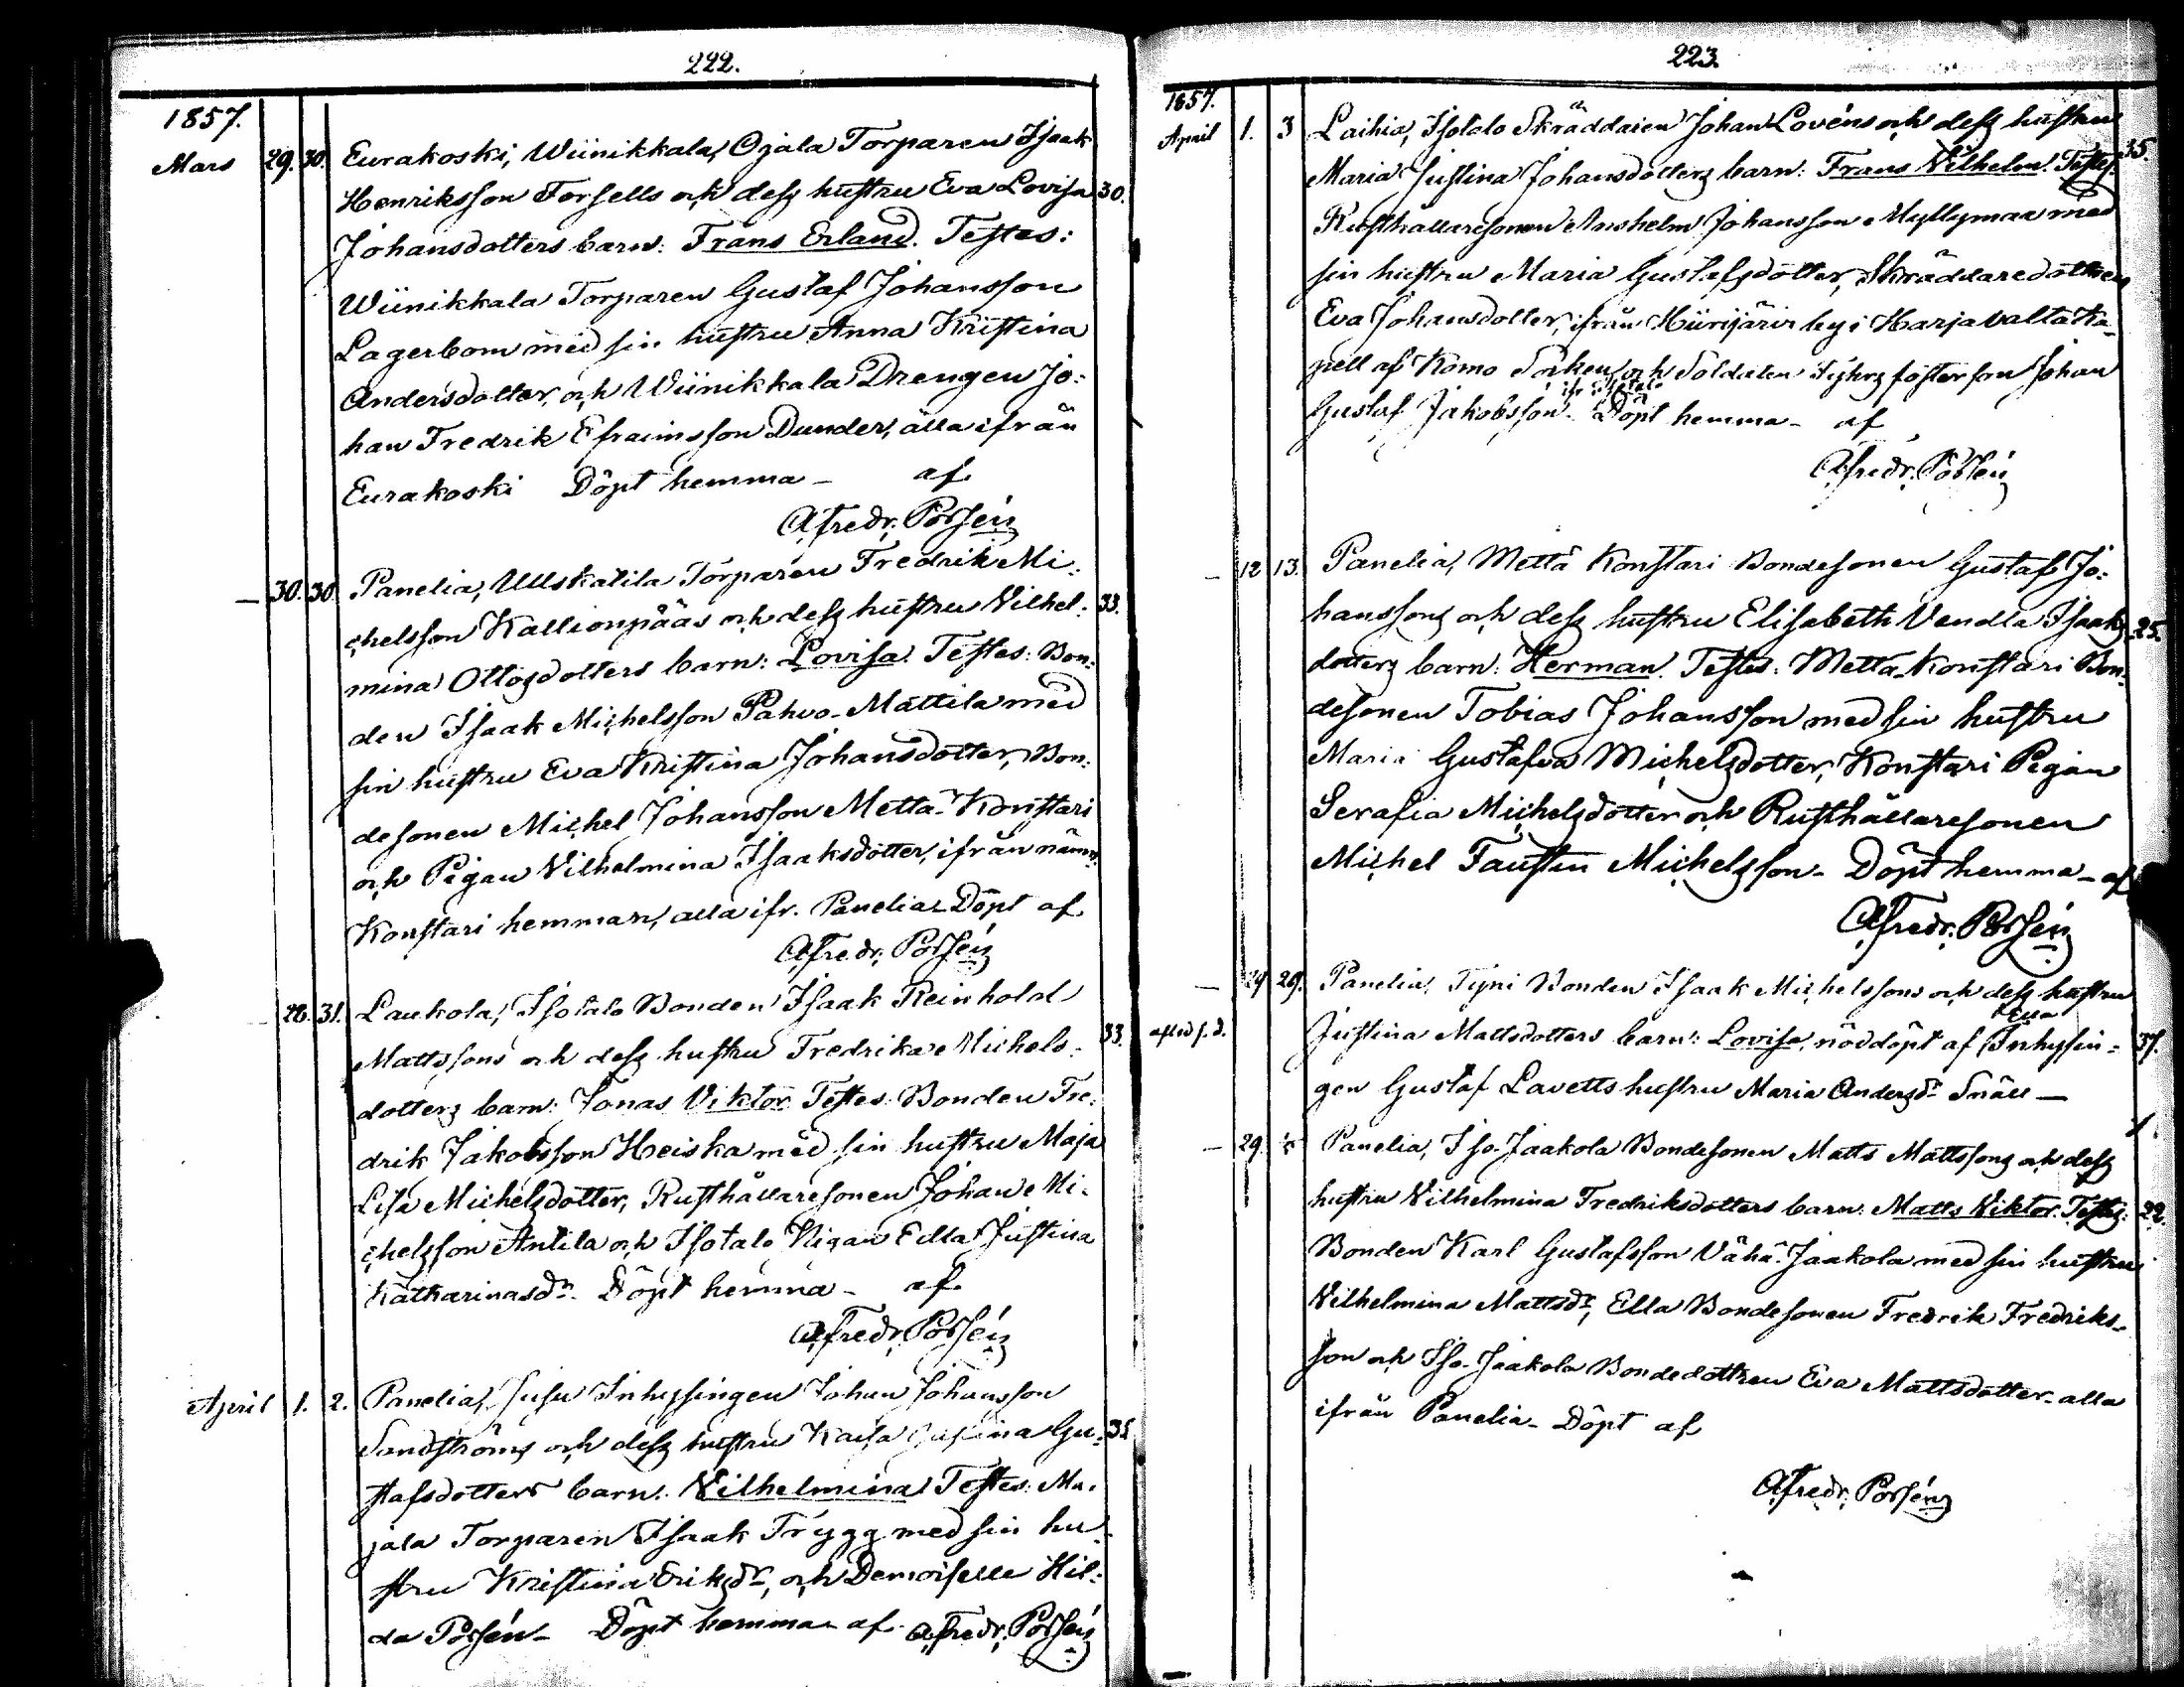 222.
1857.
Mars 29. 30. Eurakoski, Wiinikkala, Ojala Torparen Isaak
Henriksson Forsells och dess hustru Eva Lovisa 30.
Johansdotters barn: Frans Erland. Testes:
Wiinikkala Torparen Gustaf Johansson
Lagerbom med sin hustru Anna Kristina
Andersdotter, och Wiinikkala Drengen Jo-
han Fredrik Efraimsson Dunder, alla ifrån
Eurakoski Döpt hemma – af
A. Fredr. Porsén
— 30. 30. Panelia, Ullskatila Torparen Fredrik Mi-
chelsson Kallionpääs och dess hustru Vilhel- 33.
mina Ottosdotters barn: Lovisa. Testes: Bon-
den Isaak Michelsson Pahvo-Mattila med
sin hustru Eva Kristina Johansdotter, Bon-
desonen Michel Johansson Metta-Konstari
och Pigan Vilhelmina Isaaksdotter, ifrån nämn.
Konstari hemman, alla ifr. Panelia – Döpt af
A. Fredr. Porsén
28. 31. Laukola, Isotalo Bonden Isaak Reinhold
Mattssons och dess hustru Fredrika Michels- 33.
dotters barn: Jonas Viktor Testes: Bonden Fre-
drik Jakobsson Heiska med sin hustru Maja
Lisa Michelsdotter, Rusthållaresonen Johan Mi-
chelsson Antila och Isotalo Pigan Edla Justina
Katharinasdr. Döpt hemma – af
A. Fredr. Porsén
April 1. 2. Panelia, Susu Inhysingen Johan Johansson
Sandströms och dess hustru Kaisa Justina Gu- 35
stafsdotters barn: Vilhelmina Testes: Mu-
jala Torparen Isaak Trygg med sin hu-
stru Kristina Eriksdr, och Demoiselle Hil-
da Porsén – Döpt hemma af A. Fredr. Porsén
223.
1857.
April 1. 3 Laihia, Isotalo Skräddaren Johan Lovéns och dess hustru
Maria Justina Johansdotters barn: Frans Vilhelm. Testes: 35.
Rusthållaresonen Anshelm Johansson Myllymaa med
sin hustru Maria Gustafsdotter, Skräddaredottren
Eva Johansdotter, ifrån Hiirijärvi by i Harjavalta Ka-
pell af Kumo Socken, och Soldaten fosterson Johan
Gustaf Jakobsson – Döpt hemma – af
A. Fredr. Porsén
— 12 13. Panelia, Metta Konstari Bondesonen Gustaf Jo-
hanssons och dess hustru Elisabeth Vendla Isaaks- 25.
dotters barn: Herman. Testes: Metta-Konstari Bon-
desonen Tobias Johansson med sin hustru
Maria Gustafva Michelsdotter, Konstari Pigan
Serafia Michelsdotter och Rusthållaresonen
Michel Faustin Michelsson – Döpt hemma – af
A. Fredr. Porsén
— 29 29. Panelia, Tyni Bonden Isaak Michelssons och dess hustru
afled s. d. Justina Mattsdotters barn: Lovisa, nöddöpt af Ella Inhysin- 37.
gen Gustaf Lavetts hustru Maria Andersdr Snäll —
— 29. Panelia, Iso-Jaakola Bondesonen Matts Mattssons och dess
hustru Vilhelmina Fredriksdotters barn: Matts Viktor. Testes: 22.
Bonden Karl Gustafsson Vähä-Jaakola med sin hustru
Vilhelmina Mattsdr, Ella Bondesonen Fredrik Fredriks-
son och Iso-Jaakola Bondedottren Eva Mattsdotter – alla
ifrån Panelia – Döpt af
A. Fredr. Porsén